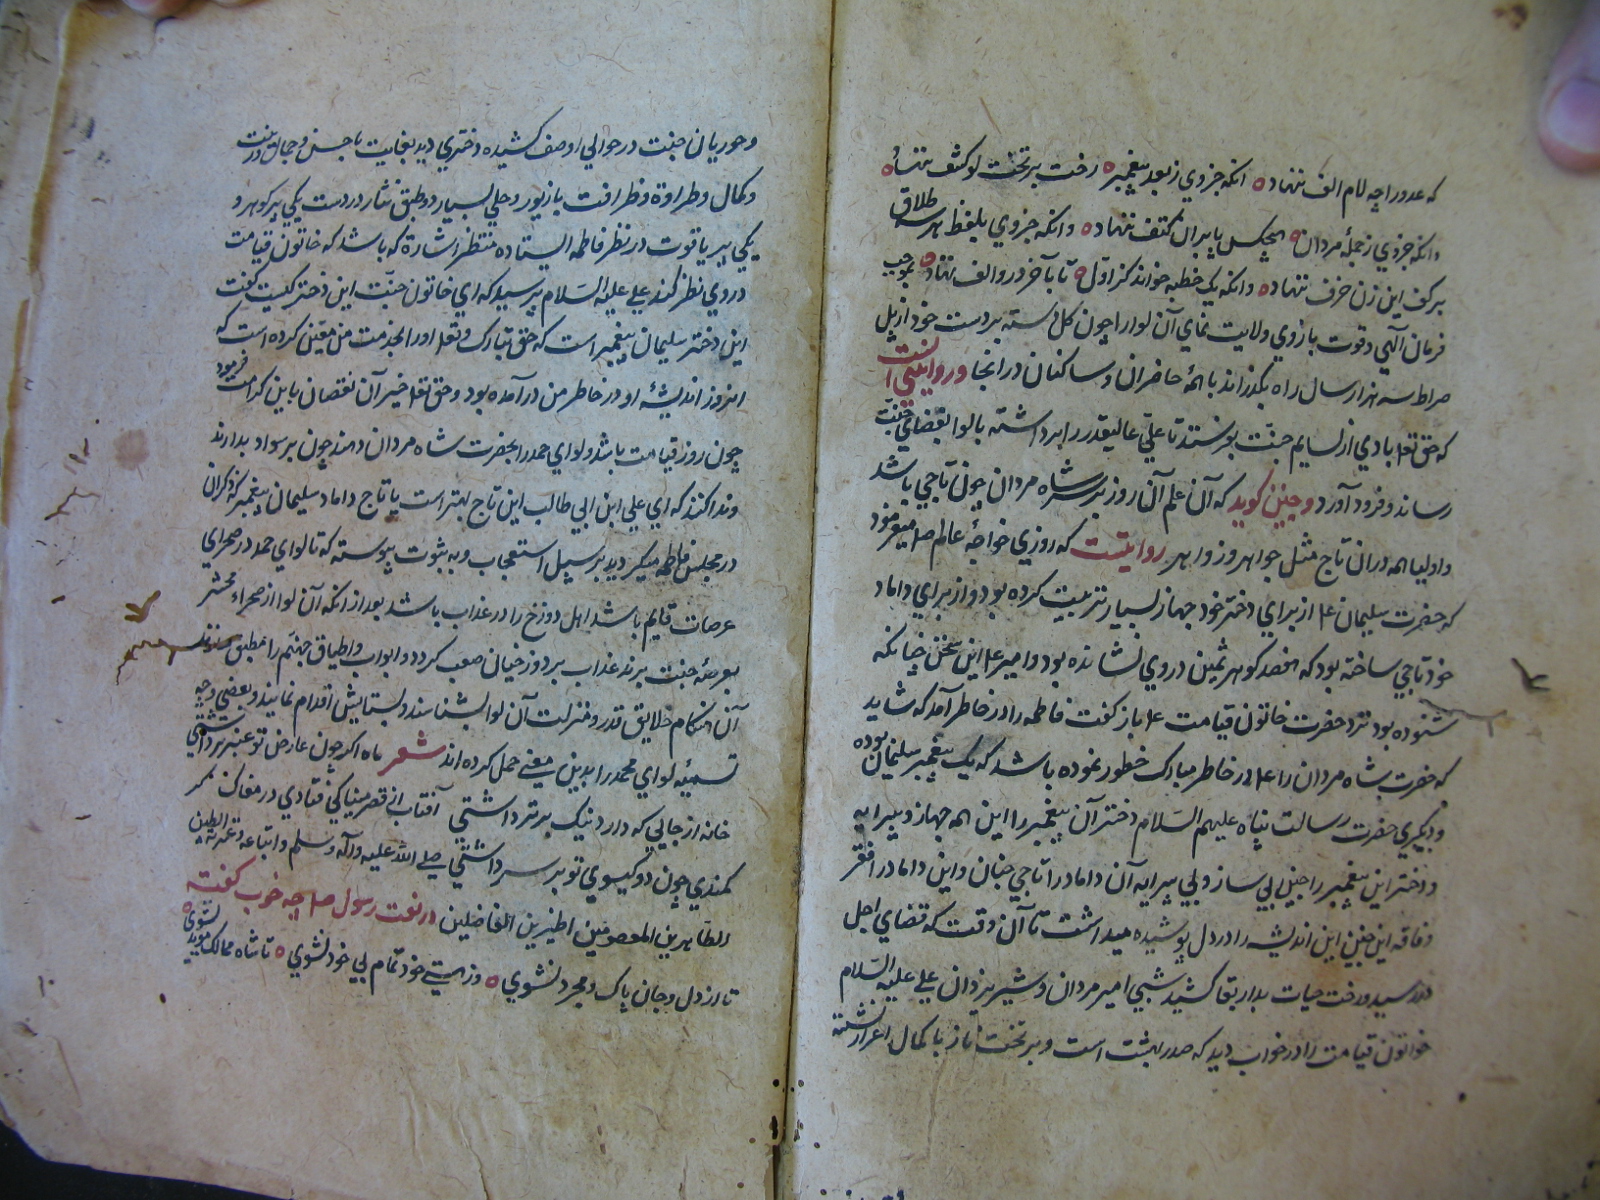 که عدو را چه لام الف ننهاد ه انکه جزوی ز بعد پیغمبر ه رخت بر تخت لو کشف ننهاد ه
وانکه جزوی از جملهٔ مردان ه هیچکس پا بران کتف ننهاد ه وانکه جزوی بلفظ هر سه طلاق
بر کف این زن حرف ننهاد ه وانکه یک خطبه خواند کز اوّل ه تا بآخر درو الف ننهاد ه بموجب
فرمان آلهی وقوت بازوی ولایت نمای آن لوا را چون کل دسته بر دست خود از پل
صراط سه هزار سال راه بکذراند با همهٔ حاضران وساکنان در انجا ودر روایتی آنست
که حق تعا بادی از نسایم جنّت بفرستد تا علیّ عالیقدر را برداشته با لوا بفضای جنّت
رساند وفرود آورد وچنین کوید که آن علم آن روز بر سر شاه مردان چون تاجی باشد
واولیا همه دران تاج مثل جواهر وزواهر روایتست که روزی خواجهٔ عالم صم میفرمود
که حضرت سلیمان عم از برای دختر خود جهاز بسیار ترتیب کرده بود واز برای داماد
خود تاجی ساخته بود که هفصد کوهر ثمین در وی نشانده بود وامیر عم این سخن چنانکه
شنوده بود نزد حضرت خاتون قیامت عم باز کفت فاطمه را در خاطر آمد که شاید
که حضرت شاه مردان را عم در خاطر مبارک خطور نموده باشد که یک پیغمبر سلیمان بوده
ودیکری حضرت رسالت پناه علیهم السّلام دختر آن پیغمبر را این همه جهاز وپیرایه
ودختر این پیغمبر را چنین بی ساز وبی پیرایه آن داماد را تاجی چنان واین داماد را فقر
وفاقه این چنین این اندیشه را در دل پوشیده میداشت تا آن وقت که قضای اجل
در رسید ورخت حیات بدار بقا کشید شبی امیر مردان وشیر یزدان علی علیه السّلام
خواتون قیامت را در خواب دید که صدر بهشت است وبر تخت ناز با کمال اعزاز نشسته
وحوریان جنّت در حوالی او صف کشیده دختری دید بغایت با حسن وجمال در زینت
وکمال وطراوة وظرافت با زیور وحلی بسیار دو طبق نثار در دست یکی پر کوهر و
یکی پر یاقوت در نظر فاطمه ایستاده منتظر اشارة که باشد که خاتون قیامت
در وی نظر کند علی علیه السّلام پرسید که ای خاتون جنّت این دختر کیست کفت
این دختر سلیمان پیغمبر است که حق تبارک وتعا او را بخدمت من معیّن کرده است که
انروز اندیشهٔ او در خاطر من درآمده بود وحق تعا خیر آن نقصان باین کرامت فرمود
چون روز قیامت باشد ولوای حمد را بحضرت شاه مردان دهند چون بر سواد بدارند
وندا کنند که ای علی ابن ابی طالب این تاج بهتر است یا تاج داماد سلیمان پیغمبر که ذکر آن
در مجلس فاطمه میکردید بر سبیل استعجاب وبه ثبوت پیوسته که تا لوای حمد در صحرای
عرصات قایم باشد اهل دوزخ را در عذاب باشد بعد از انکه آن لوا از صحراء محشر
بعرصهٔ جنّت برند عذاب بر دوزخیان صعب کردد وابواب واطباق جهنّم را مطبق سازند
آن هنکام خلایق قدر ومنزلت آن لوا بشناسند وبستایش اقدام نمایند وبعضی وجه
تسمیهٔ لوای محمد را بدین معنی حمل کرده اند شعر ماه اکر چون عارض تو عنبر برداشتی
خانه از جایی که دارد نیک برتر داشتی آفتاب از قصر مینا کی فتادی در مغاک کر
کمندی چون دو کیسوی تو بر سر داشتی صلّی اللّه علیه وآله وسلم واتباعه وعترته الطیبین
الطّاهرین المعصومین اطیرین الفاضلین در نعت رسول صم چه خوب کفته
تا از دل وجان پاک ومجرد نشوی ه وز هستی خود تمام بی خود نشوی ه تا شاه ممالک موید نشوی ه